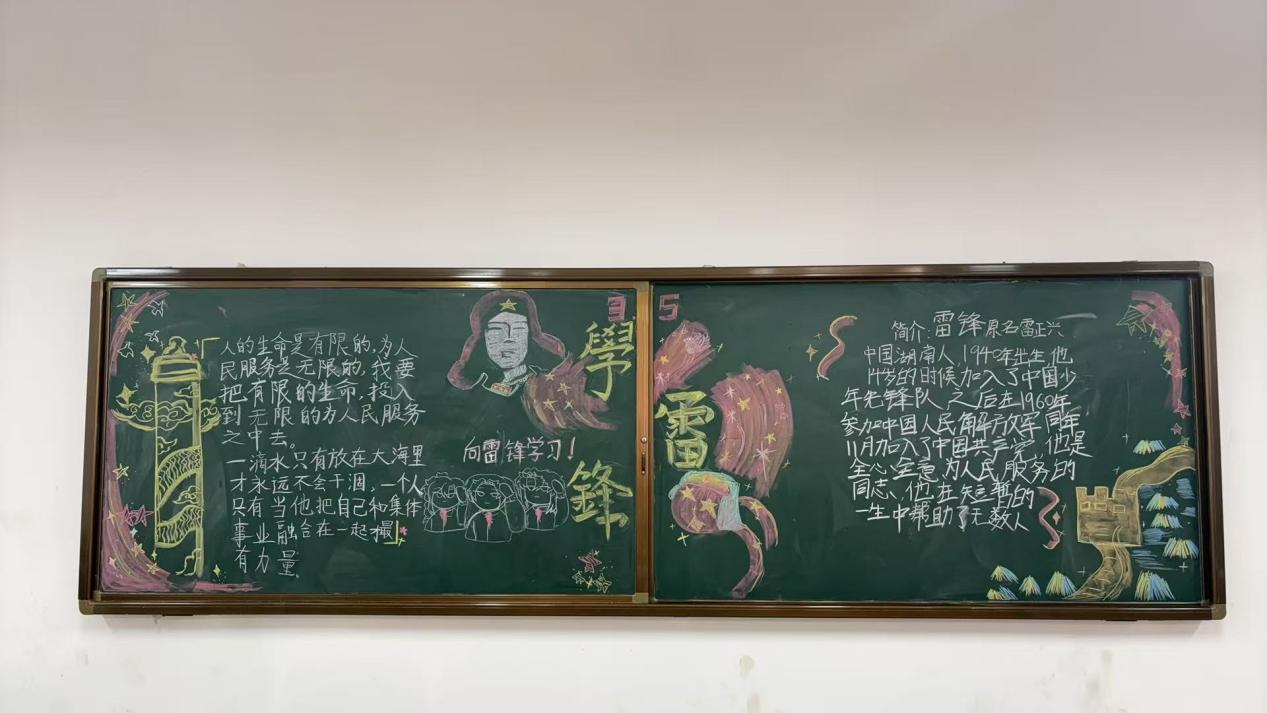 人的生命是有限的,为人
民服务是无限的,我要
把有限的生命,投入
到无限的为人民服务
之中去。
一滴水只有放在大海里
才永远不会干涸,一个人
只有当他把自己和集体
事业融合在一起
有力量
向雷锋学习!
3.5
學
雷
鋒
简介:雷锋原名雷正兴
中国湖南人1940年出生他
14岁的时候加入了中国少
年先锋队之后在1960年
参加中国人民解放军同年
11月加入了中国共产党,他是
全心全意为人民服务的
同志、他在短暂的
一生中帮助了无数人